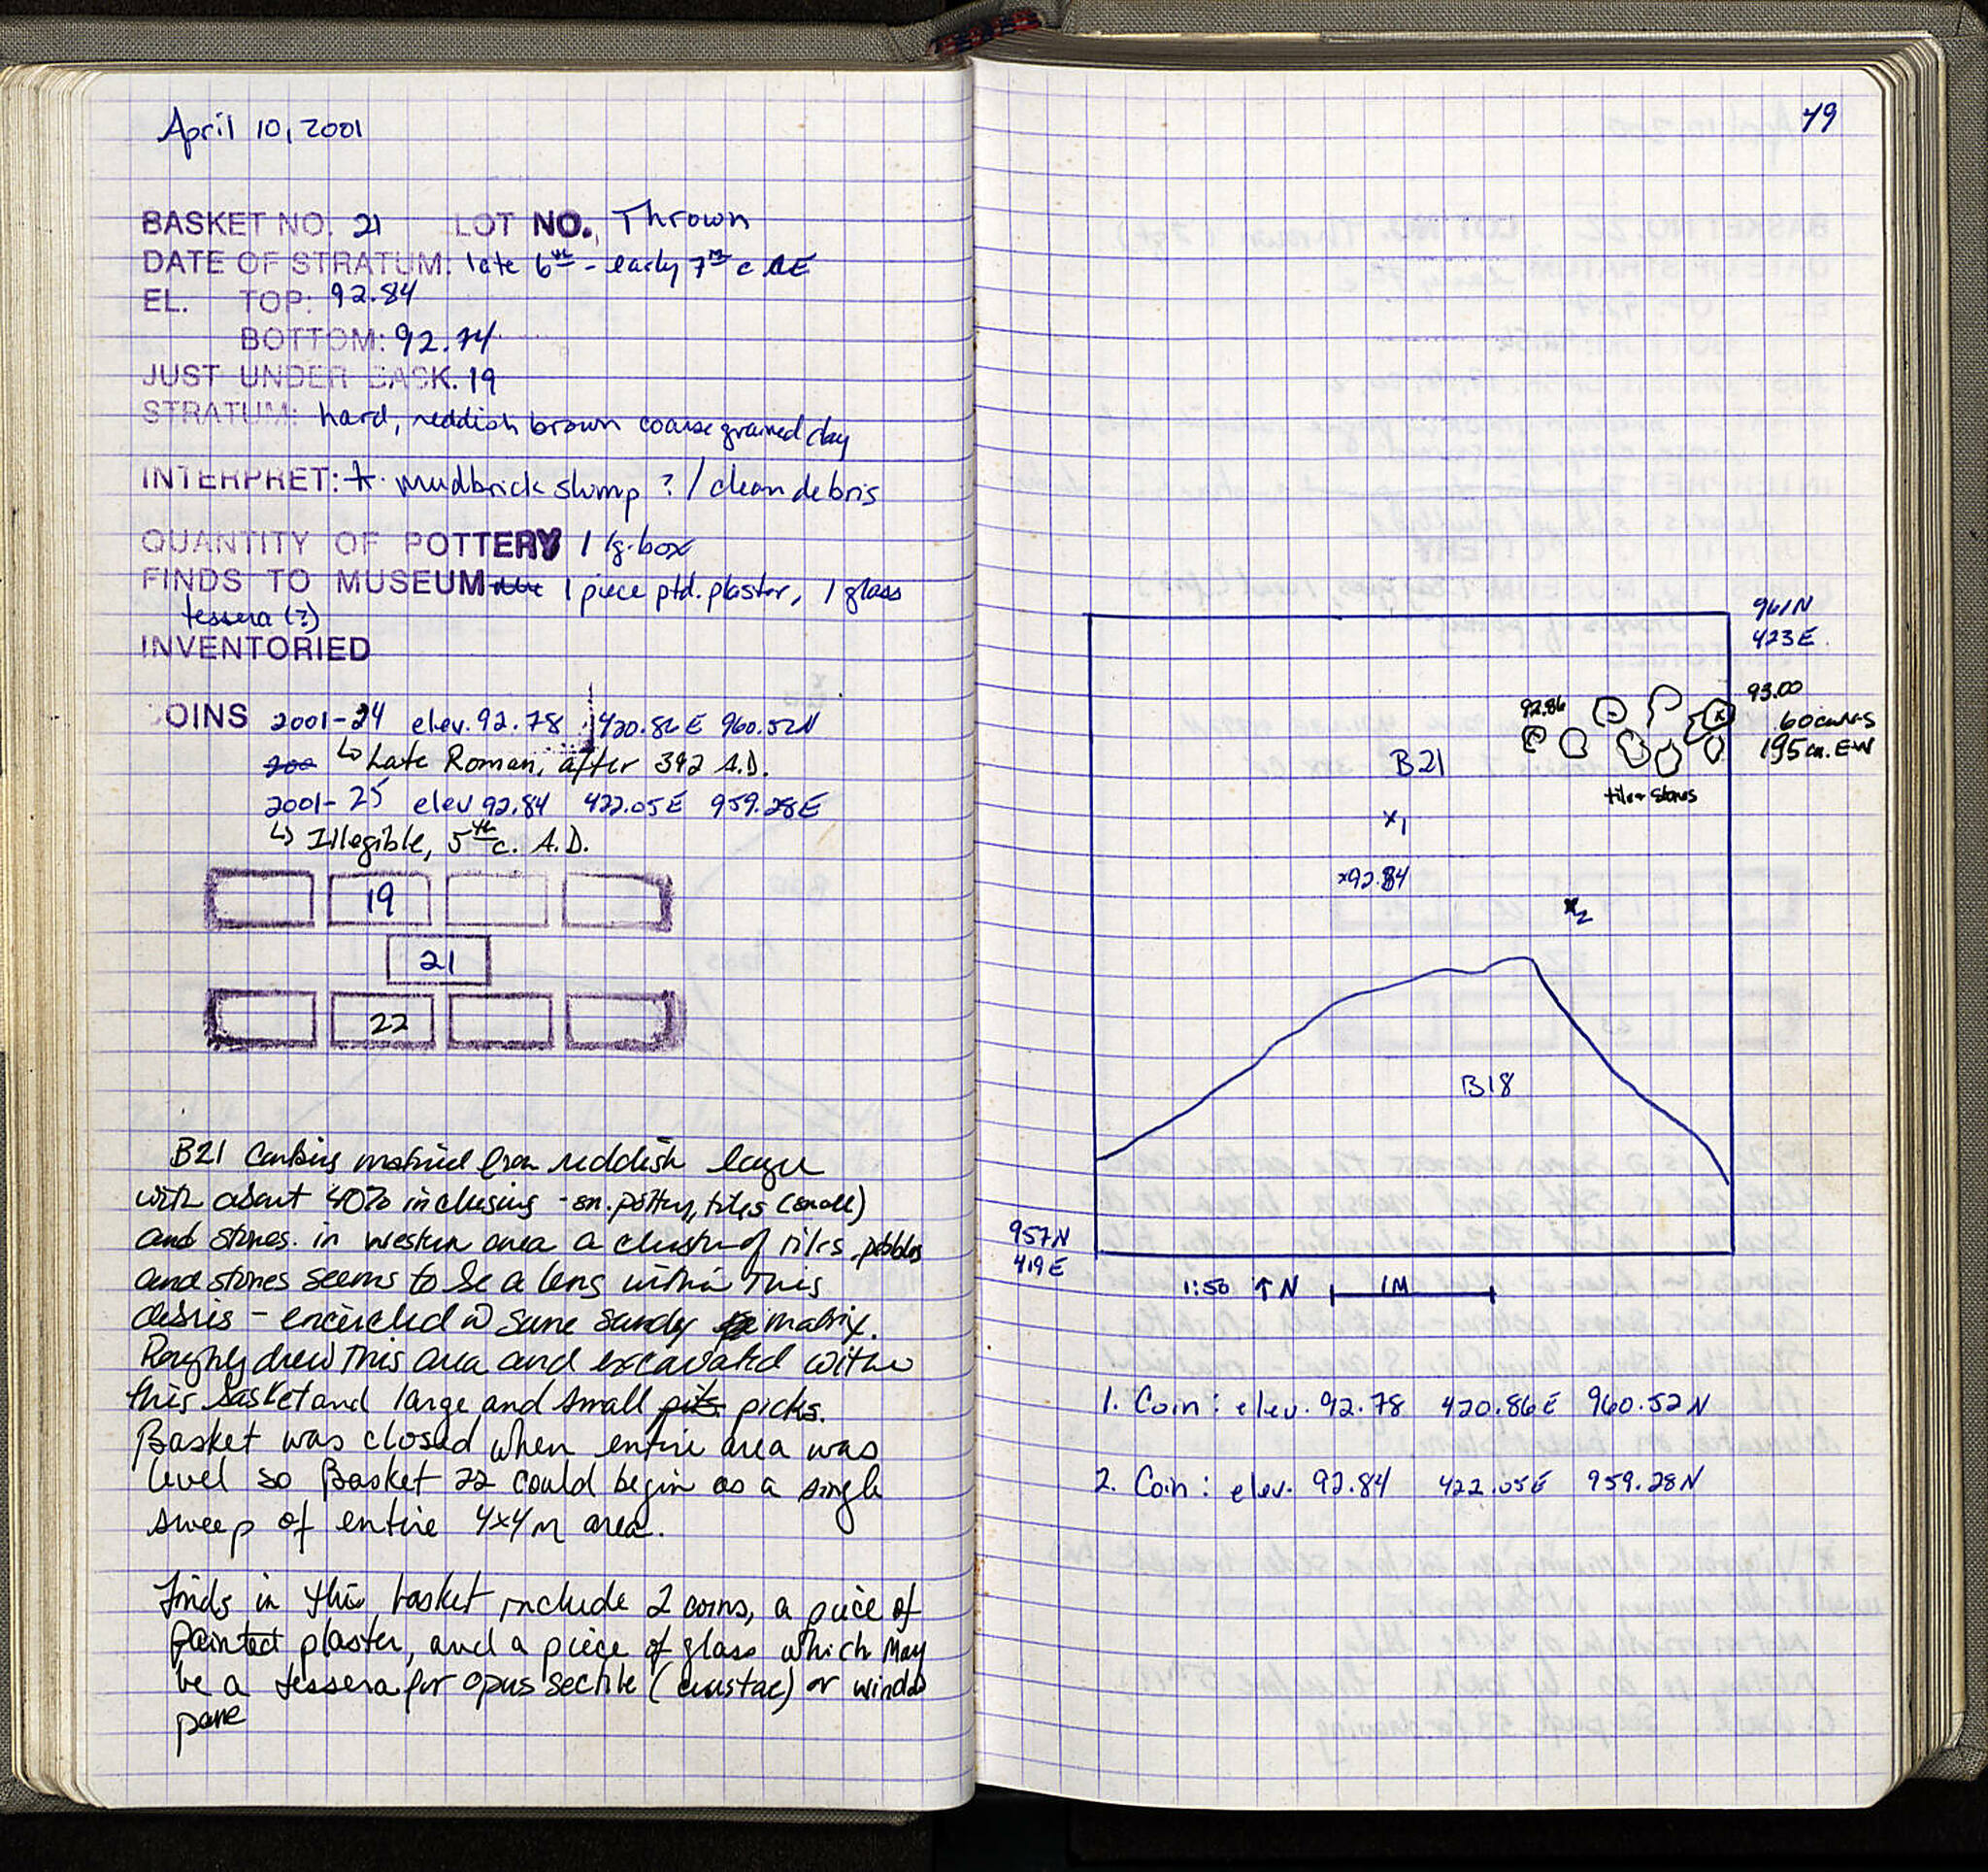 April 10, 2001
BASKET NO. 21 LOT NO. Thrown
DATE OF STRATUM: late 6th - early 7th c CE
EL. TOP: 92.84
BOTTOM: 92.74
JUST UNDER BASK. 19
STRATUM: hard, reddish brown coarse grained clay
INTERPRET: mudbrick slump ? / clean debris
QUANTITY OF POTTERY 1 lg. box
FINDS TO MUSEUM 1 piece ptd. plaster, 1 glass
tessera (?)
INVENTORIED
COINS 2001-24 elev. 92.78 420.86 E 960.52N
↳ Late Roman, after 392 A.D.
2001-25 elev 92.84 422.05E 959.28E
↳ Illegible, 5th c. A.D.
19
21
22
B21 contains material from reddish layer
with about 40% inclusions - sm. pottery, tiles (small)
and stones. in western area a cluster of tiles, pebbles
and stones seems to be a lens within this
debris - encircled w same sandy matrix.
Roughly drew this area and excavated with
this basket and large and small pits picks.
Basket was closed when entire area was
level so Basket 22 could begin as a single
sweep of entire 4x4m area.
Finds in this basket include 2 coins, a piece of
painted plaster, and a piece of glass which may
be a tessera for opus sectile (crustae) or window
pane
49
961N
423E
93.00
92.86
.60 cm N-S
195 cm. E-W
B21
tile + stones
x1
x92.84
x2
B18
957N
419E
1:50 ↑N 1M
1. Coin: elev. 92.78 420.86E 960.52N
2. Coin: elev. 92.84 422.05E 959.28N